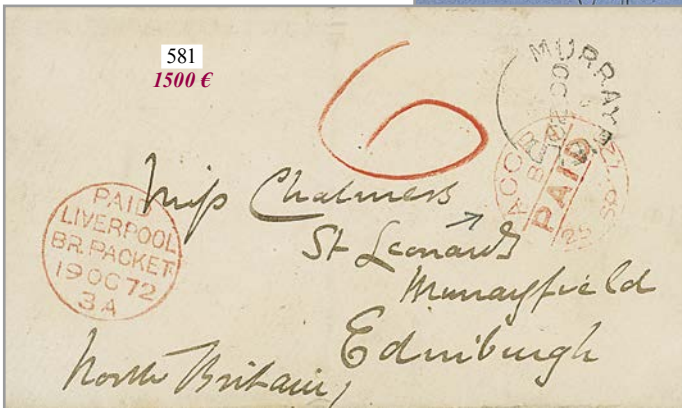 581
1500 €
6
MURRAYF
ACCRA
PAID
PAID
LIVERPOOL
BR. PACKET
19 OC 72
3A
Miss Chalmers
St Leonards
Murrayfield
Edinburgh
North Britain